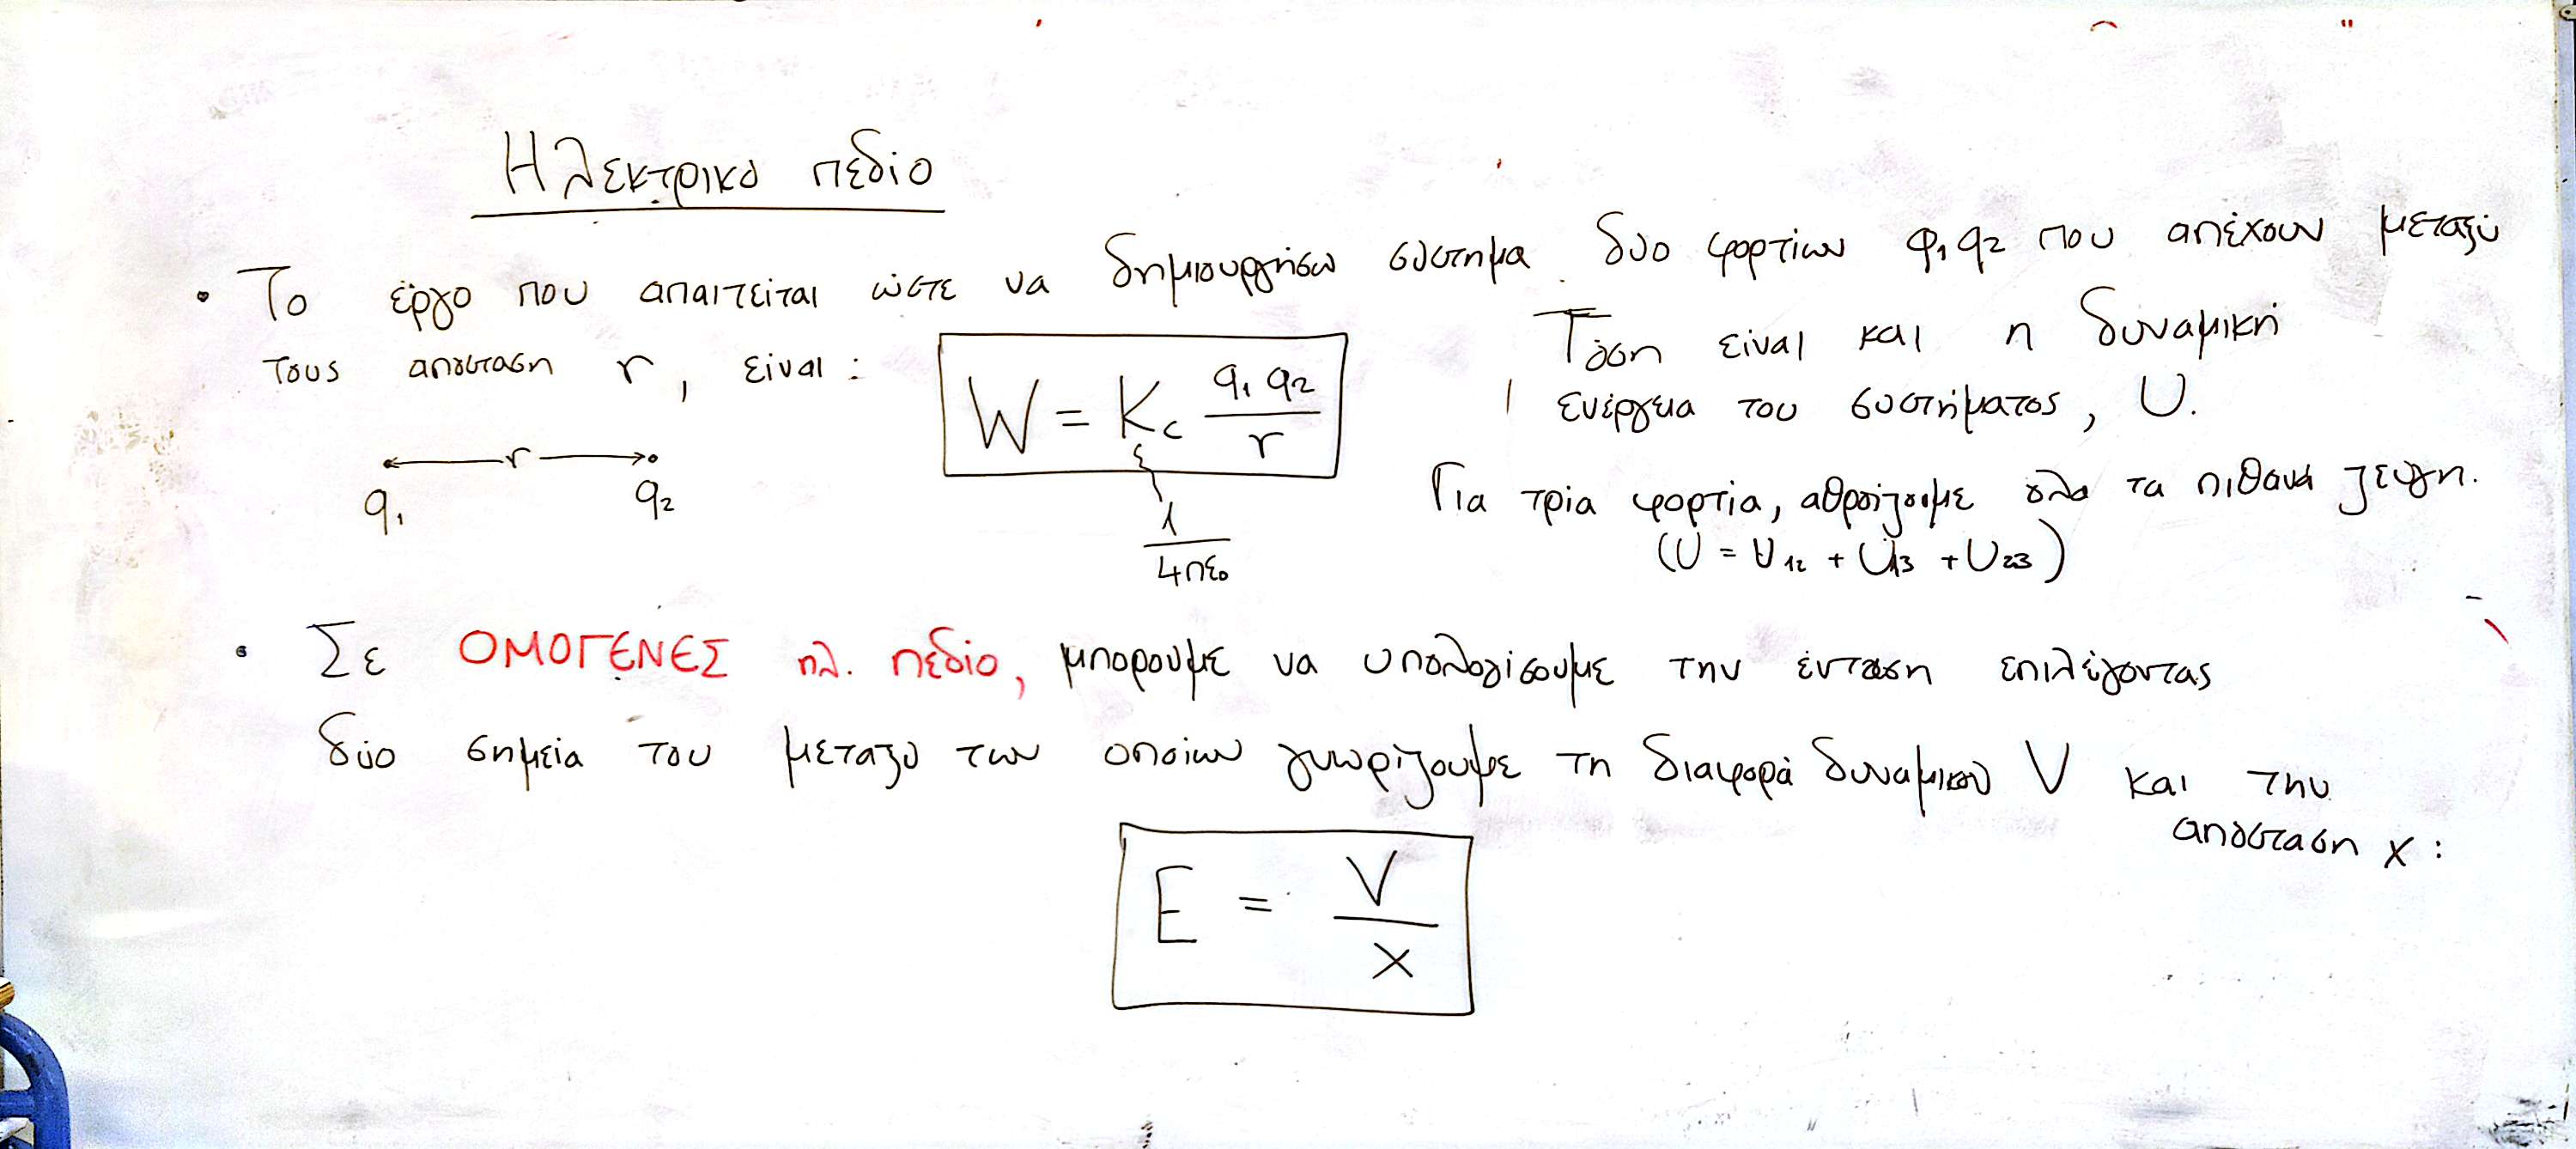 Ηλεκτρικό πεδίο
• Το έργο που απαιτείται ώστε να δημιουργήσω σύστημα δύο φορτίων q₁ q₂ που απέχουν μεταξύ
τους απόσταση r, είναι :
W = Kc q₁ q₂ / r
1 / 4πε₀
r
q₁ q₂
Τόση είναι και η δυναμική
ενέργεια του συστήματος, U.
Για τρία φορτία, αθροίζουμε όλα τα πιθανά ζεύγη.
(U = U₁₂ + U₁₃ + U₂₃)
• Σε ΟΜΟΓΕΝΕΣ ηλ. πεδίο, μπορούμε να υπολογίσουμε την ένταση επιλέγοντας
δύο σημεία του μεταξύ των οποίων γνωρίζουμε τη διαφορά δυναμικού V και την
απόσταση x :
E = V / x